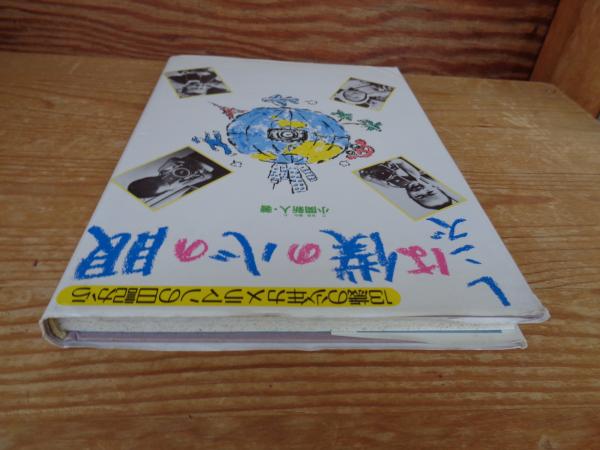 13歳の少年カメラマンの日記から
レンズは僕の心の眼
小関新人・著